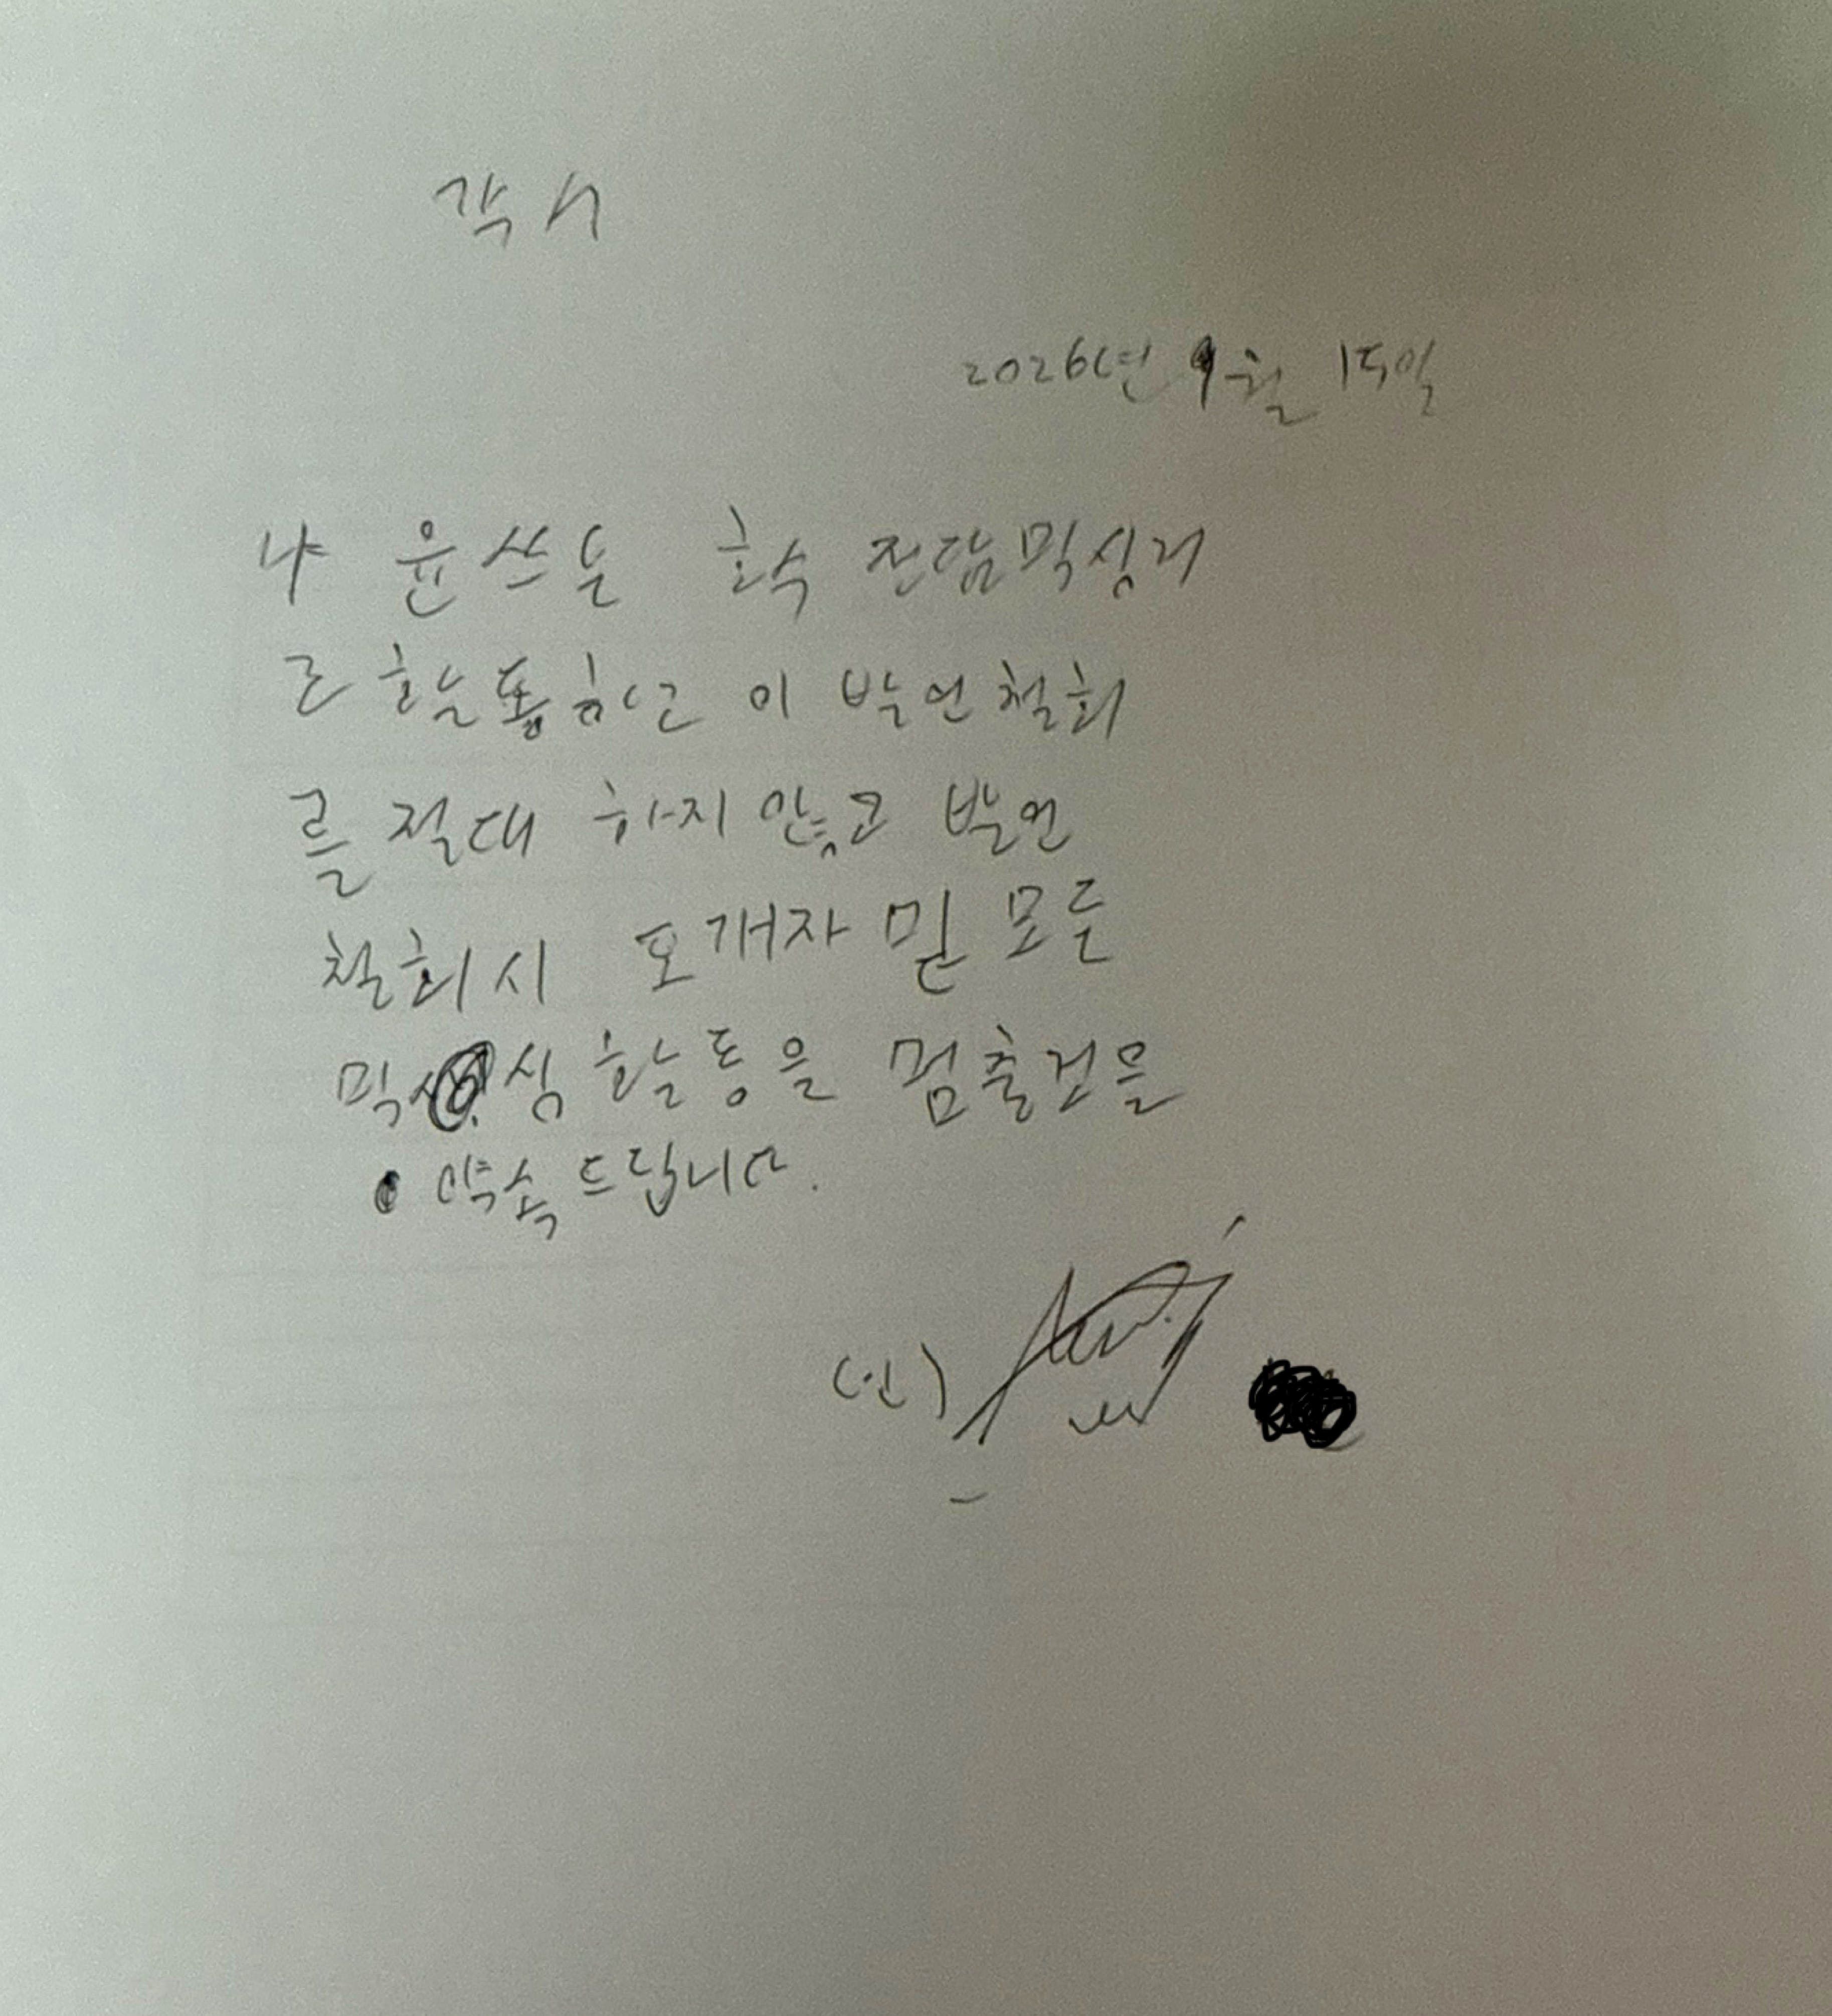 각서
2026년 9월 15일
나 윤쓰는 학수 전담믹싱러
로 활동하고 이 발언철회
를 절대 하지 않고 발언
철회시 모개자 및 모든
믹싱 활동을 멈출것을
약속드립니다.
(인)